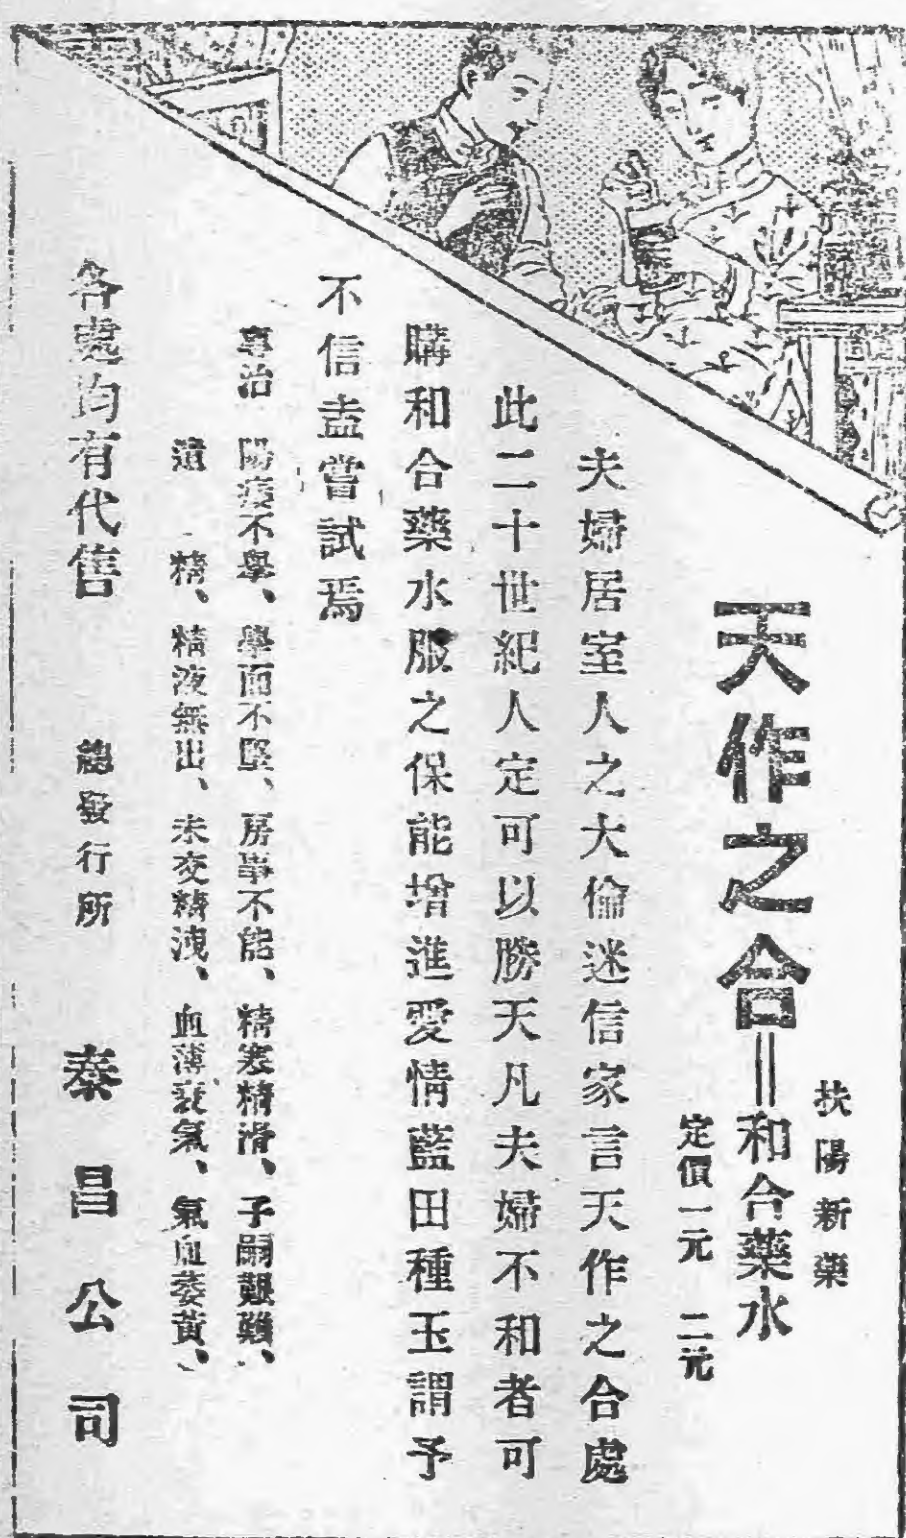 扶陽新藥
天作之合＝和合藥水
定價一元 二元
夫婦居室人之大倫迷信家言天作之合處
此二十世紀人定可以勝天凡夫婦不和者可
購和合藥水服之保能增進愛情藍田種玉謂予
不信盍嘗試焉
專治 陽痿不舉、舉而不堅、房事不能、精寒精滑、子嗣艱難、
遺 精、精液無出、未交精洩、血薄衰氣、氣血萎黃、
各處均有代售 總發行所 泰昌公司